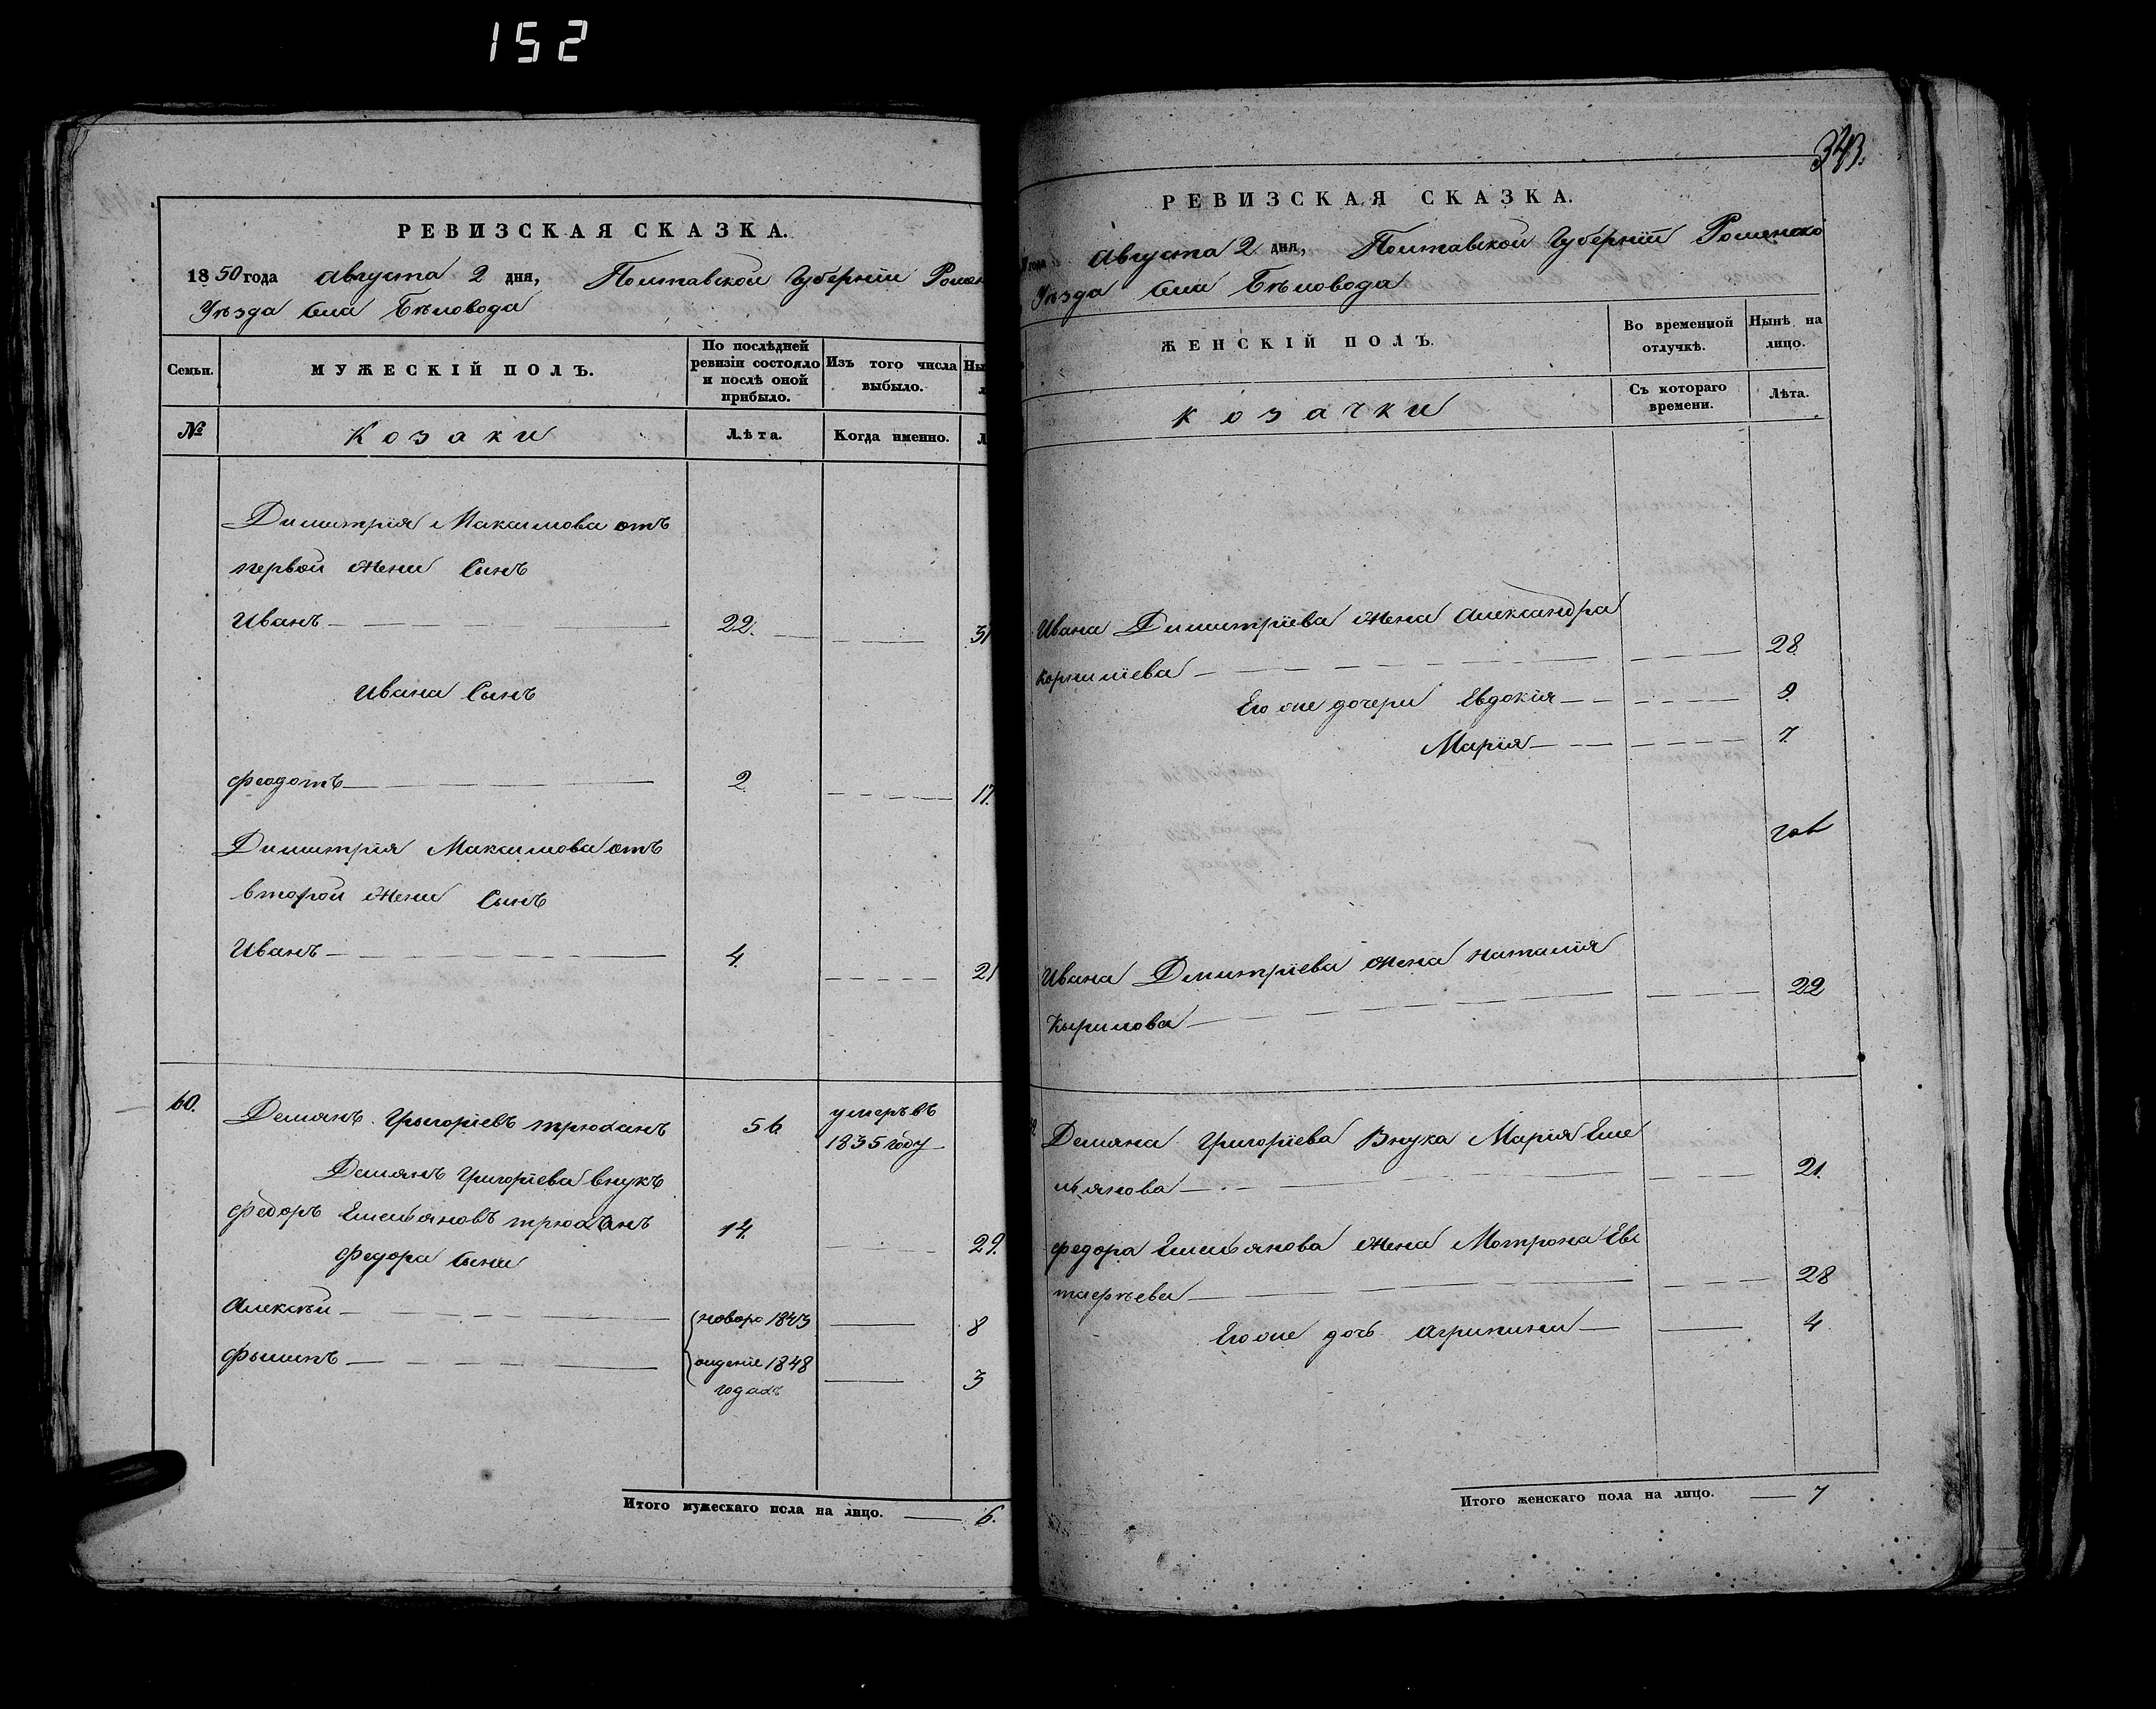 152
РЕВИЗСКАЯ СКАЗКА.
1850 года Августа 2 дня, Полтавской Губерніи Ромен
Уѣзда Села Бѣловода
Семьи.
МУЖЕСКІЙ ПОЛЪ.
По послѣдней ревизіи состояло и послѣ оной прибыло.
Изъ того числа выбыло.
Ны
№
Козаки
Лѣта.
Когда именно.
Л
Димитрія Максимова отъ
первой жени Сынъ
Иванъ 22. 31
Ивана Сынъ
Феодотъ 2 17.
Димитрия Максимова отъ
второй жени Сынъ
Иванъ 4. 21
60. Демянъ Грыгоріевъ Трюханъ 56. умеръ въ
1835 году
Демянъ Григоріева внукъ
Федоръ Емельяновъ Трюханъ 14. 29.
Федора Сыни
Алексѣй новоро 1843 8
Фылипъ жденіе 1848 3
годахъ
Итого мужескаго пола на лицо. 6.
343.
РЕВИЗСКАЯ СКАЗКА.
года Августа 2 дня, Полтавской Губерніи Роменско
Уѣзда Села Бѣловода
ЖЕНСКІЙ ПОЛЪ.
Во временной отлучкѣ.
Нынѣ на лицо.
Козачки
Съ котораго времени.
Лѣта.
Ивана Димитріева жена Александра
Корнилѣева 28.
Его же дочери Евдокія 9.
Марія 7.
Ивана Дмитріева жена Наталія
Кырилова 22
Демяна Григоріева Внука Марія Еме
льянова 21.
Федора Емельянова жена Мотрона Евс
тафѣева 28
Его же дочь Агрипини 4
Итого женскаго пола на лицо. 7